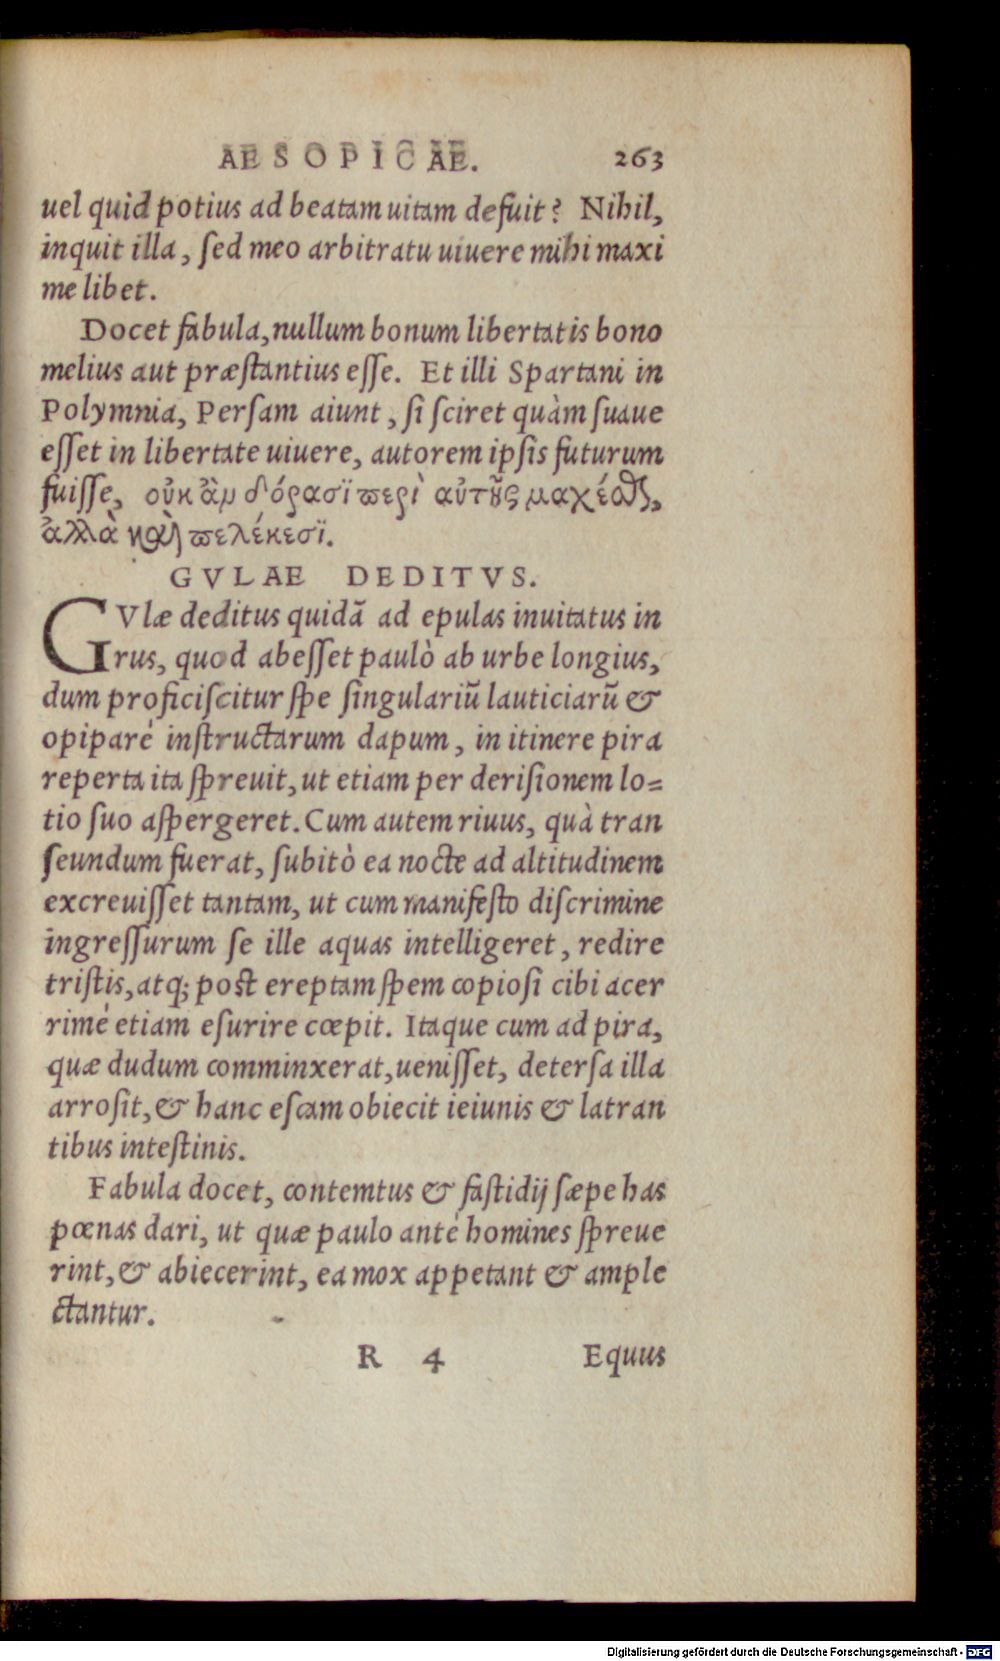 AESOPICAE. 263
uel quid potius ad beatam uitam defuit? Nihil,
inquit illa, ſed meo arbitratu uiuere mihi maxi
me libet.
Docet fabula, nullum bonum libertatis bono
melius aut præſtantius eſſe. Et illi Spartani in
Polymnia, Perſam aiunt, ſi ſciret quàm ſuaue
eſſet in libertate uiuere, autorem ipſis futurum
fuiſſe, οὐκ ἂν δόρασϊ περὶ αὐτῆς μαχέσθαι,
ἀλλὰ καὶ πελέκεσϊ.
GVLAE DEDITVS.
GVlæ deditus quidã ad epulas inuitatus in
rus, quod abeſſet paulò ab urbe longius,
dum proficiſcitur ſpe ſingulariũ lauticiarũ &
opiparè inſtructarum dapum, in itinere pira
reperta ita ſpreuit, ut etiam per deriſionem lo=
tio ſuo aſpergeret. Cum autem riuus, quà tran
ſeundum fuerat, ſubitò ea nocte ad altitudinem
excreuiſſet tantam, ut cum manifeſto diſcrimine
ingreſſurum ſe ille aquas intelligeret, redire
triſtis, atq; poſt ereptam ſpem copioſi cibi acer
rimè etiam eſurire cœpit. Itaque cum ad pira,
quæ dudum comminxerat, ueniſſet, deterſa illa
arroſit, & hanc eſcam obiecit ieiunis & latran
tibus inteſtinis.
Fabula docet, contemtus & faſtidij ſæpe has
pœnas dari, ut quæ paulo antè homines ſpreue
rint, & abiecerint, ea mox appetant & ample
ctantur.
R 4 Equus
Digitalisierung gefördert durch die Deutsche Forschungsgemeinschaft - DFG